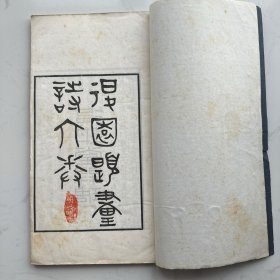 退園題畫
詩六卷